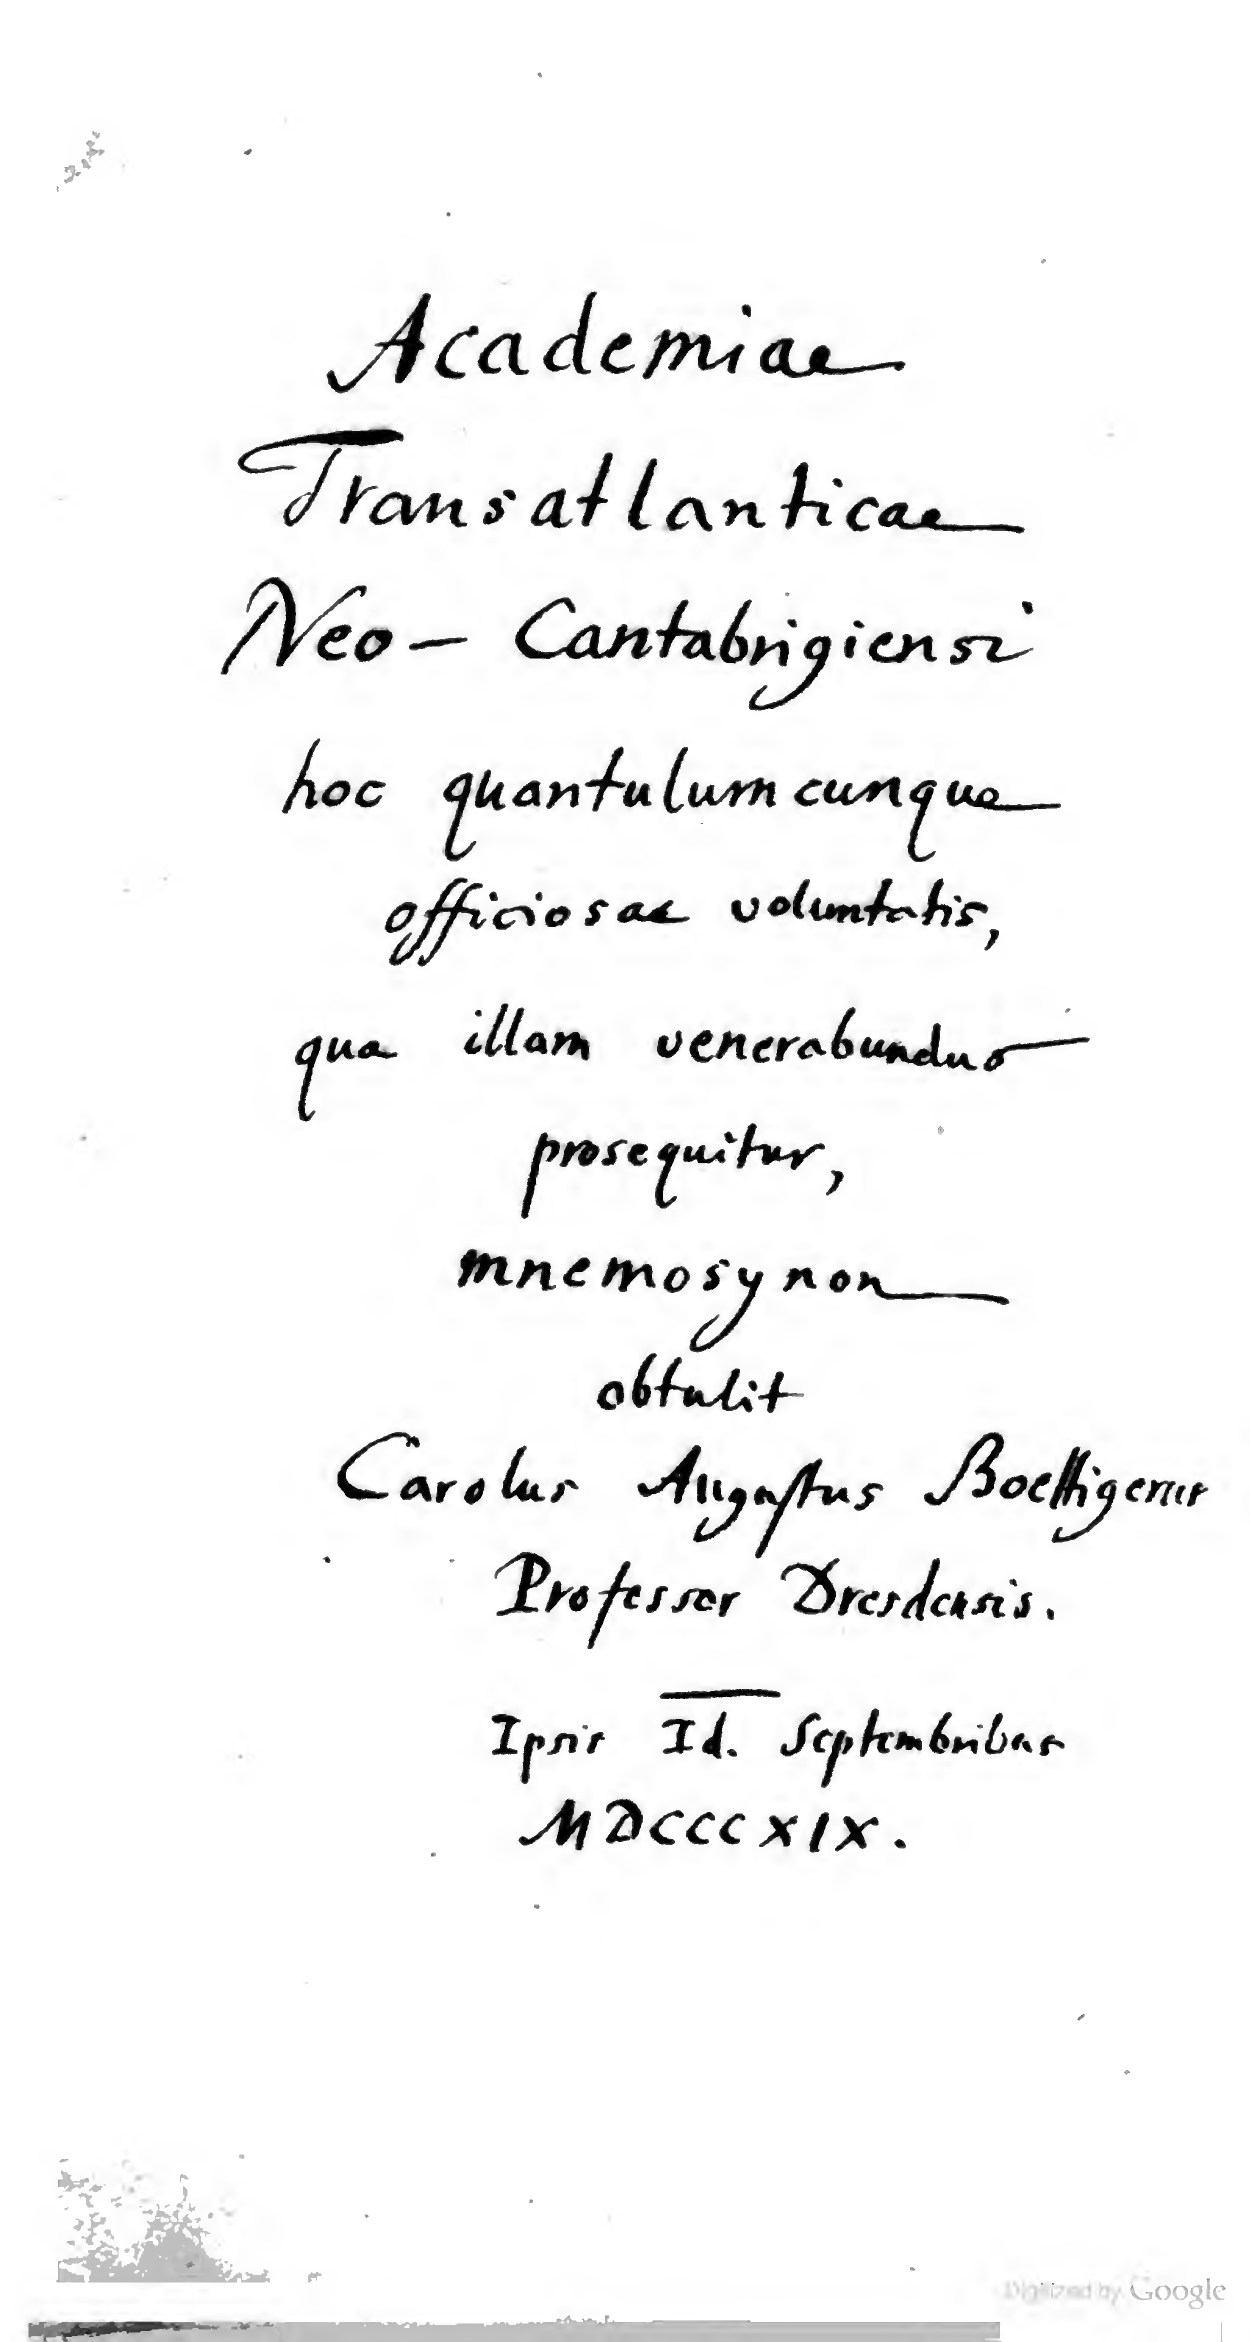 Academiae
Transatlanticae
Neo - Cantabrigiensi
hoc quantulumcunque
officiosae voluntatis,
qua illam venerabundus
prosequitur,
mnemosynon
obtulit
Carolus Augustus Boettigerus
Professor Dresdensis.
Ipsis Id. Septembribus
MDCCCXIX.
Digitized by Google